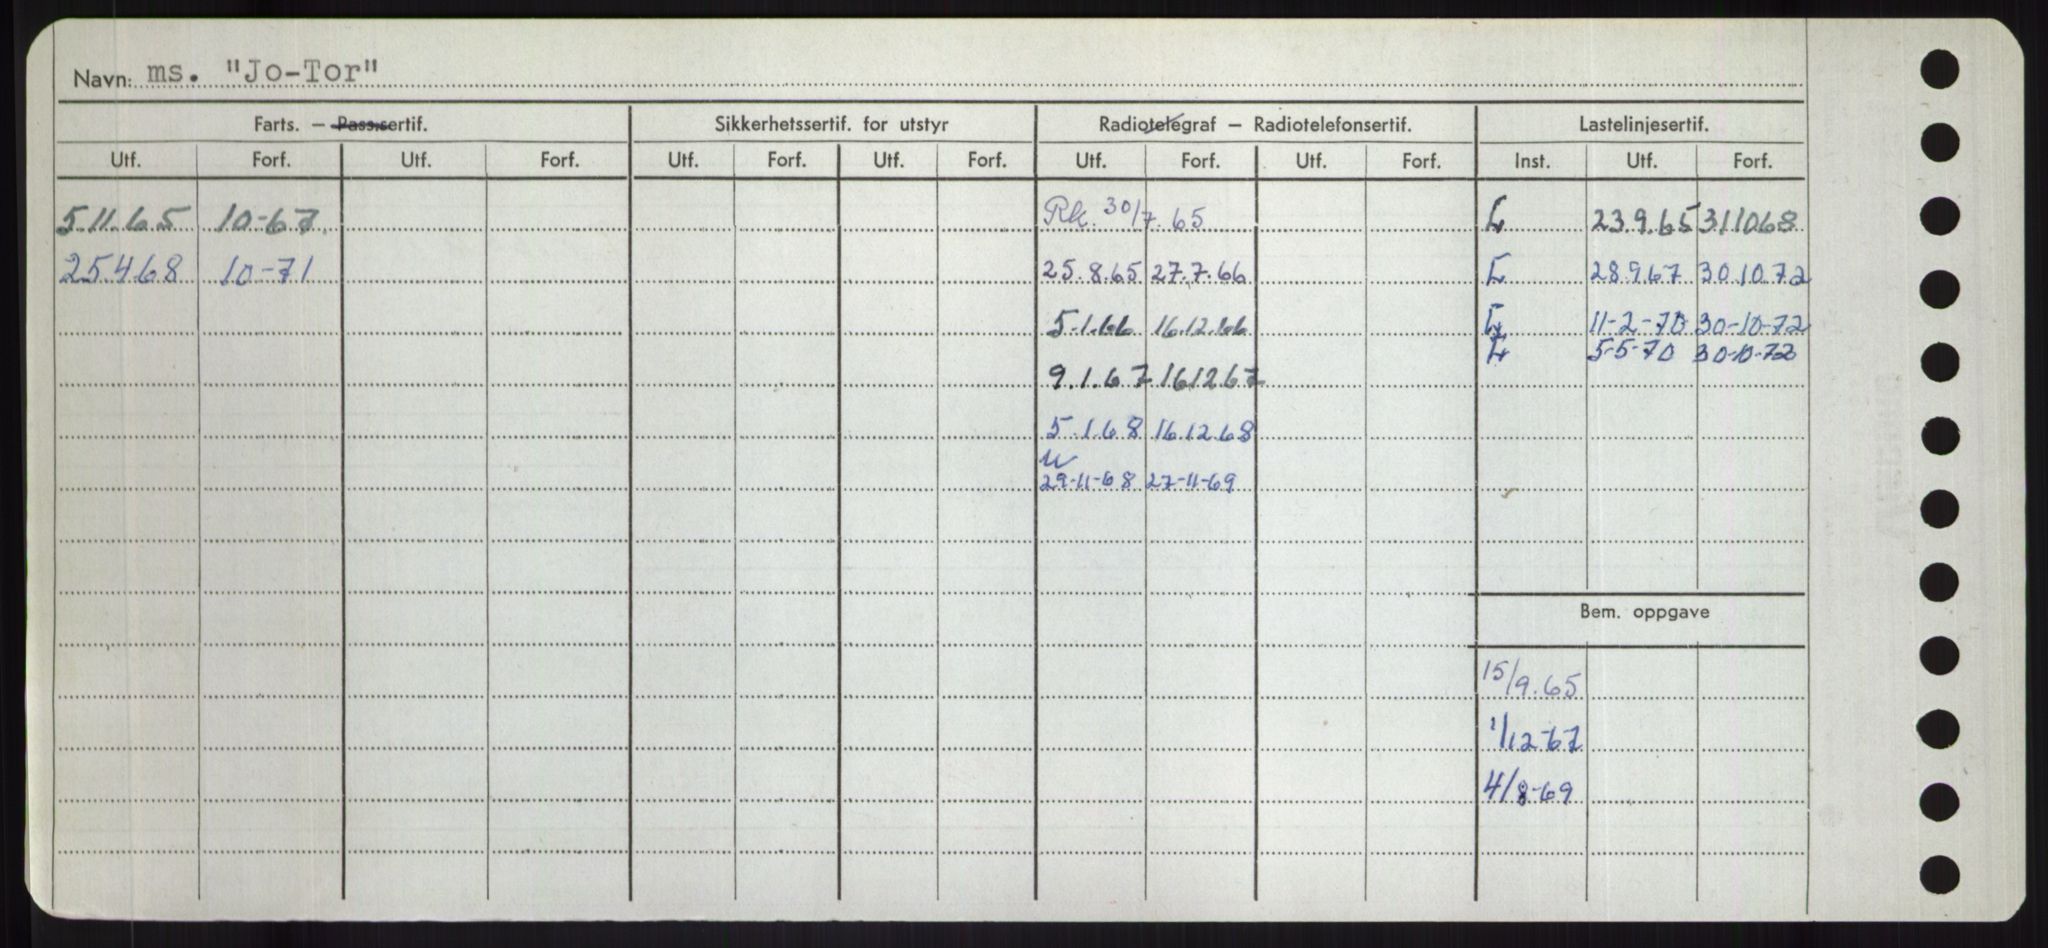 Navn: ms. "Jo-Tor"
Farts. — Pass.sertif. Sikkerhetssertif. for utstyr Radiotelegraf — Radiotelefonsertif. Lastelinjesertif.
Utf. Forf. Utf. Forf. Utf. Forf. Utf. Forf. Utf. Forf. Utf. Forf. Inst. Utf. Forf.
5.11.65 10-67 Rk. 30/7.65 L 23.9.65 311068
25.4.68 10-71 25.8.65 27.7.66 L 28.9.67 30.10.72
5.1.66 16.12.66 L 11-2-70 30-10-72
L 5-5-70 30-10-72
9.1.67 161267
5.1.68 16.12.68
U
29-11-68 27-11-69
Bem. oppgave
15/9.65
1/12-67
4/8-69